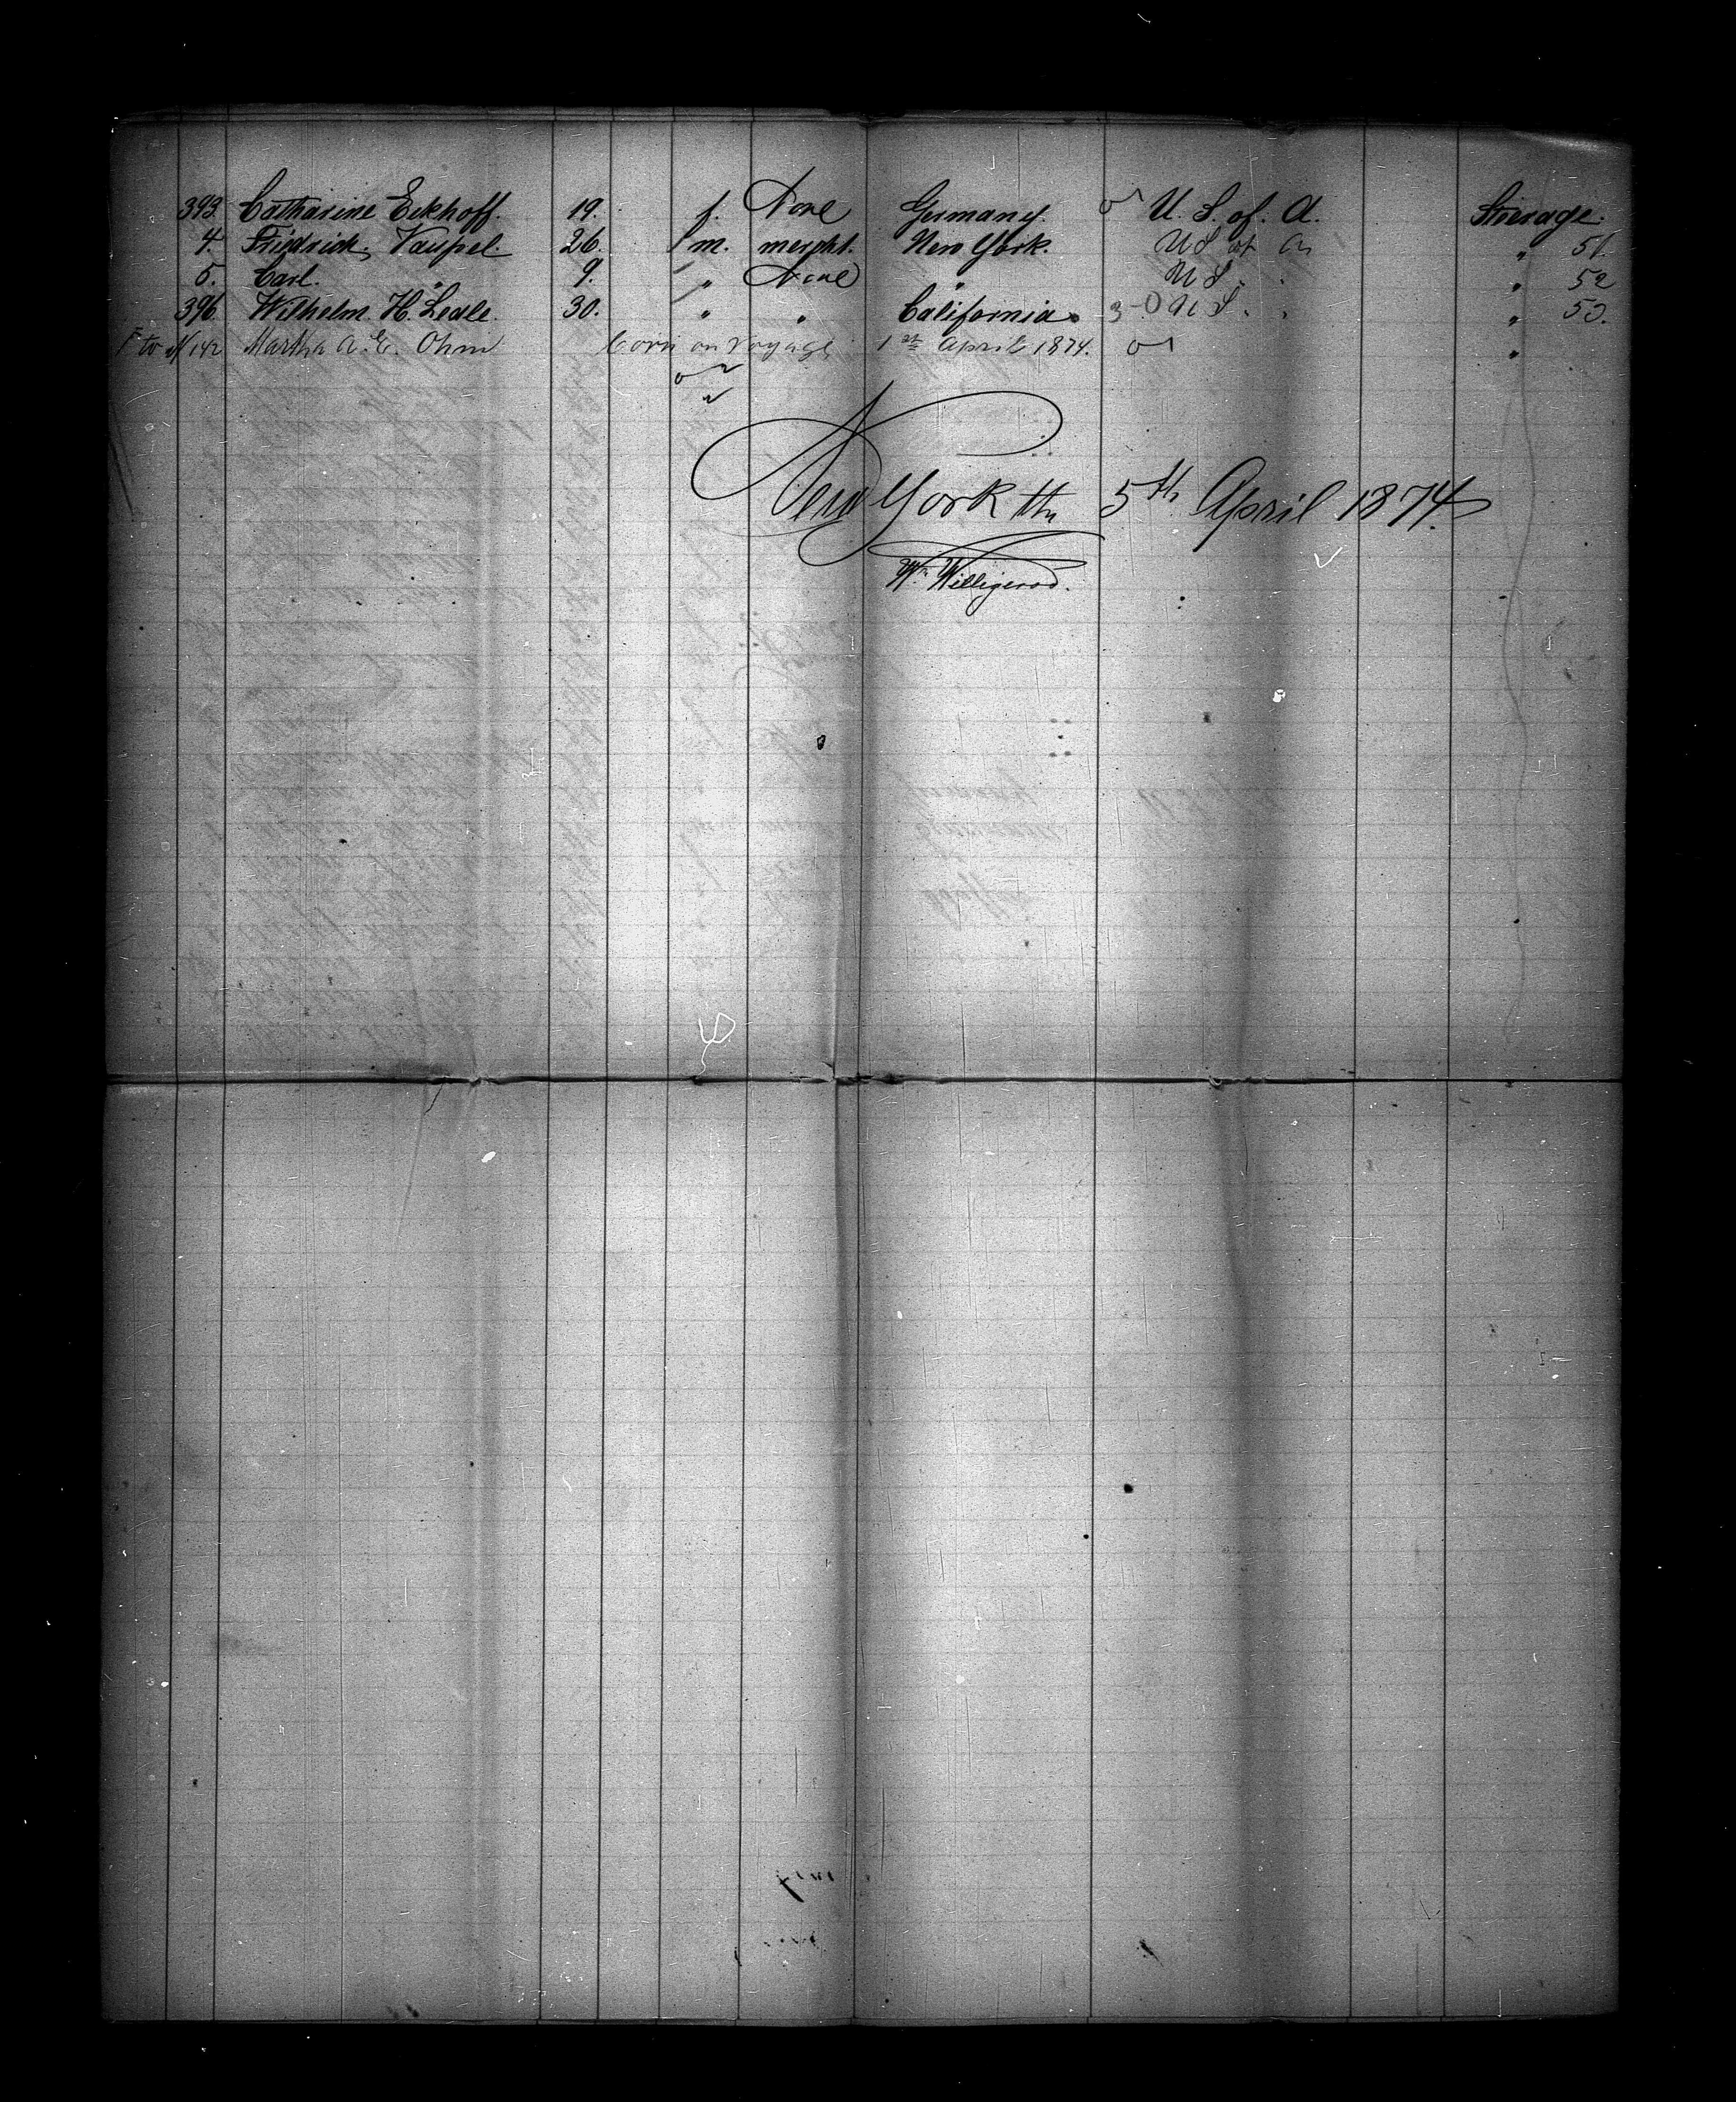 393. Catharine Eckhoff. 19. f. None Germany. U. S. of. A. Steerage.
4. Friedrich Vaupel. 26. m. mercht. New York. U S of A " 51.
5. Carl. " 9. " None " U S. " 52
396. Wilhelm. H. Ledle. 30. " " California. 3-0 U S. " 53.
to N 142 Martha A. E. Ohm born on voyage 1st April 1874. "
New York th 5th April 1874.
Wm Willigerod.